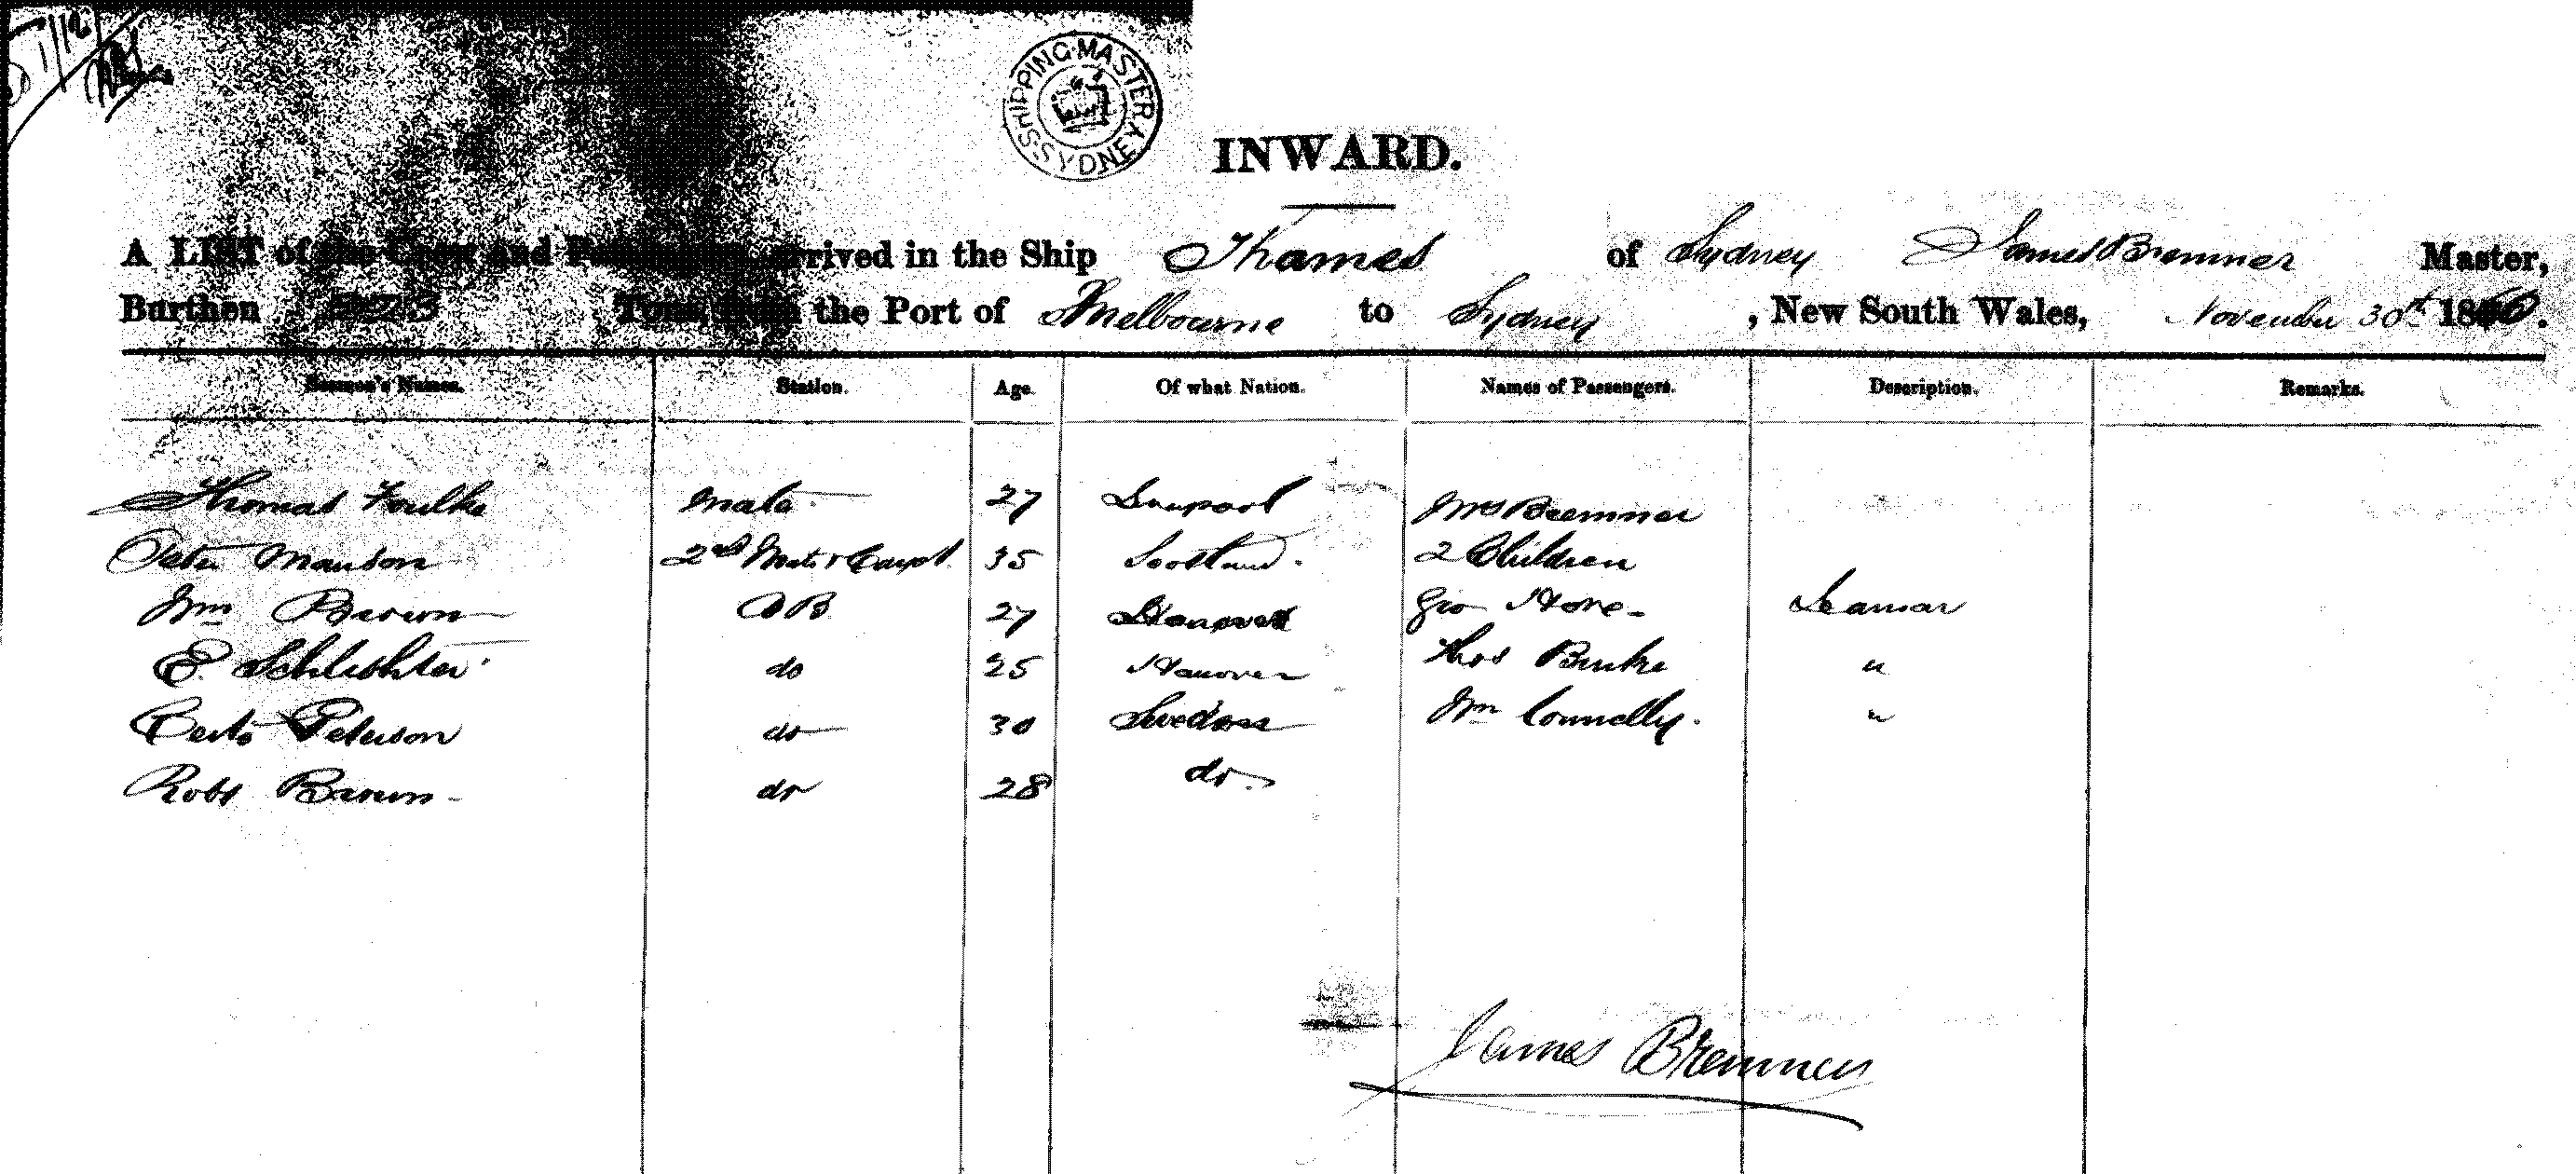 SHIPPING MASTER SYDNEY
INWARD.
A LIST of the Crew and arrived in the Ship Thames of Sydney James Bremner Master,
Burthen Tons from the Port of Melbourne to Sydney , New South Wales, November 30th 18
Seamen's Names. Station. Age. Of what Nation. Names of Passengers. Description. Remarks.
Thomas Foulke Mate 27 Liverpool Mrs Bremner
Peter Manson 2nd Mate & Carpt. 35 Scotland. 2 Children
Wm Brown AB 27 Geo Hore Seaman
E. Schlishter do 25 Hanover Thos Burke "
Peterson do 30 Wm Connelly. "
Robt Brown do 28 do
James Bremner